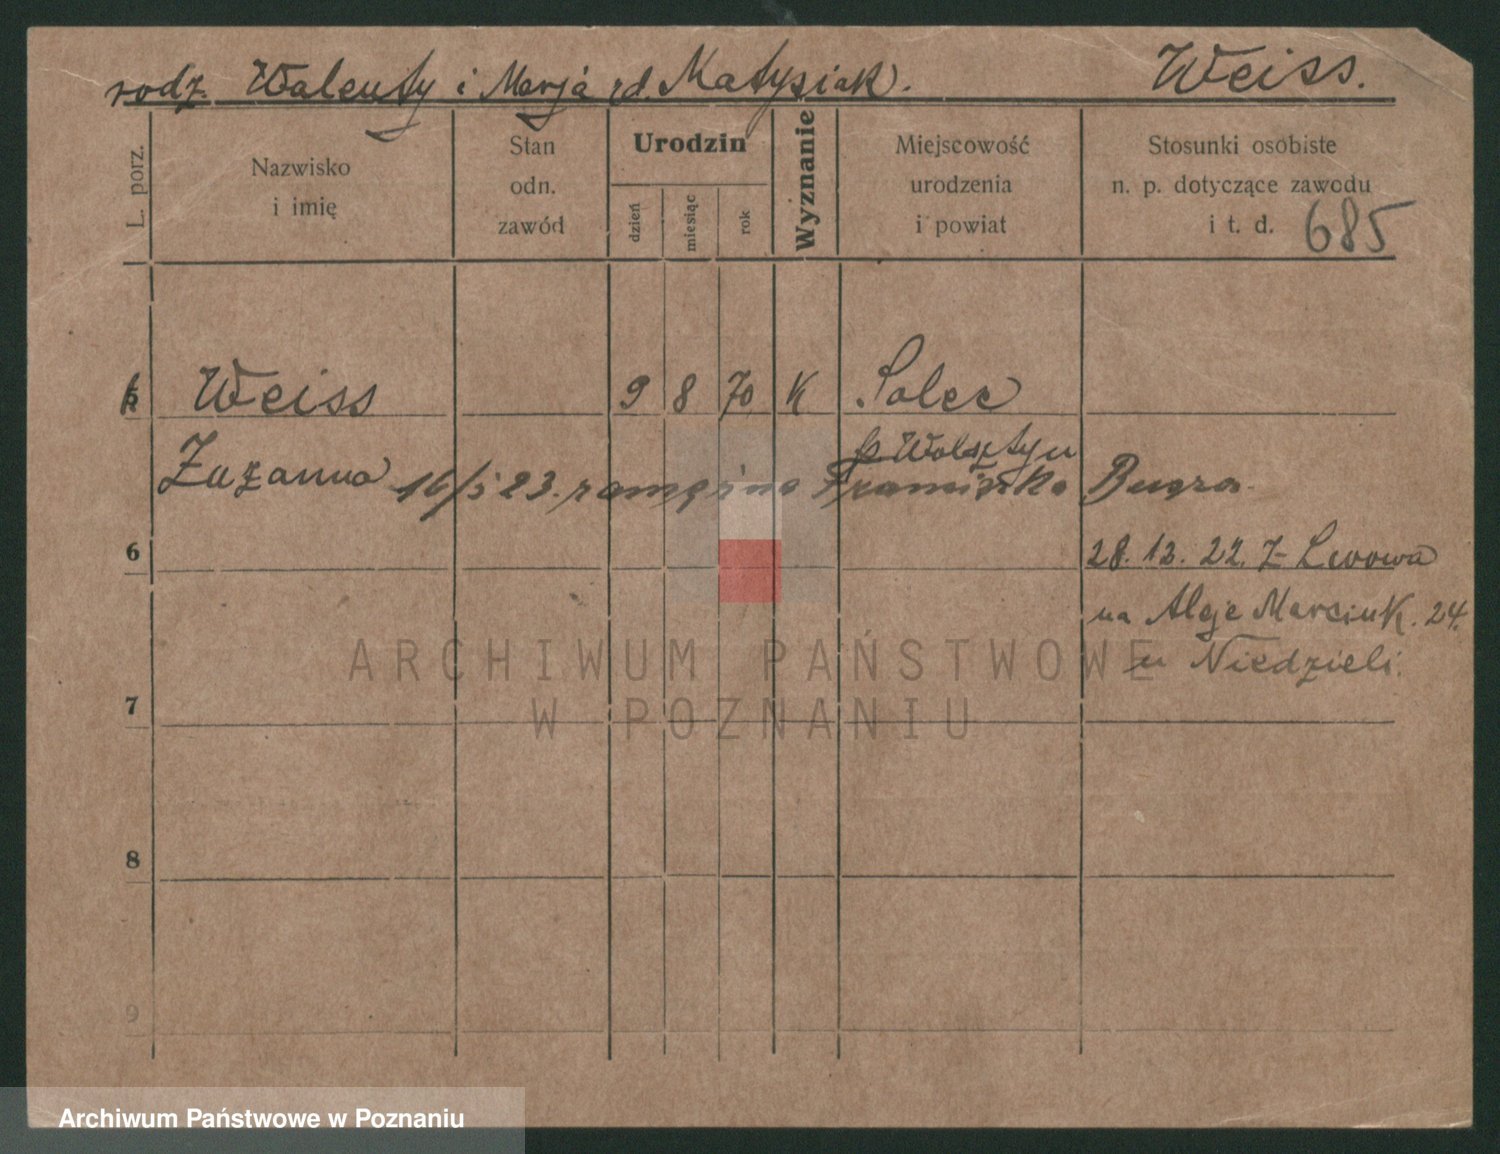 rodz. Walenty i Marja zd. Matysiak. Weiss.
L. porz.
Nazwisko
i imię
Stan
odn.
zawód
Urodzin
dzień
miesiąc
rok
Wyznanie
Miejscowość
urodzenia
i powiat
Stosunki osobiste
n. p. dotyczące zawodu
i t. d. 685
Weiss 9 8 70 K Solec
p Wolsztyn
Zuzanna 16/5 23. zamężna Bugra
6
28. 12. 22. Z Lwowa
na Aleje Marcink. 24.
u Niedzieli.
7
8
9
ARCHIWUM PAŃSTWOWE
W POZNANIU
Archiwum Państwowe w Poznaniu